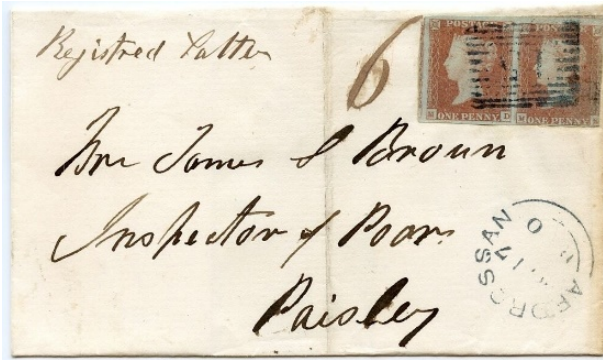 Registred Letter
6
POSTAGE
ONE PENNY
M D
ONE PENNY
M
Mr James S Brown
Inspector of Poor
Paisley
ARDROSSAN
17